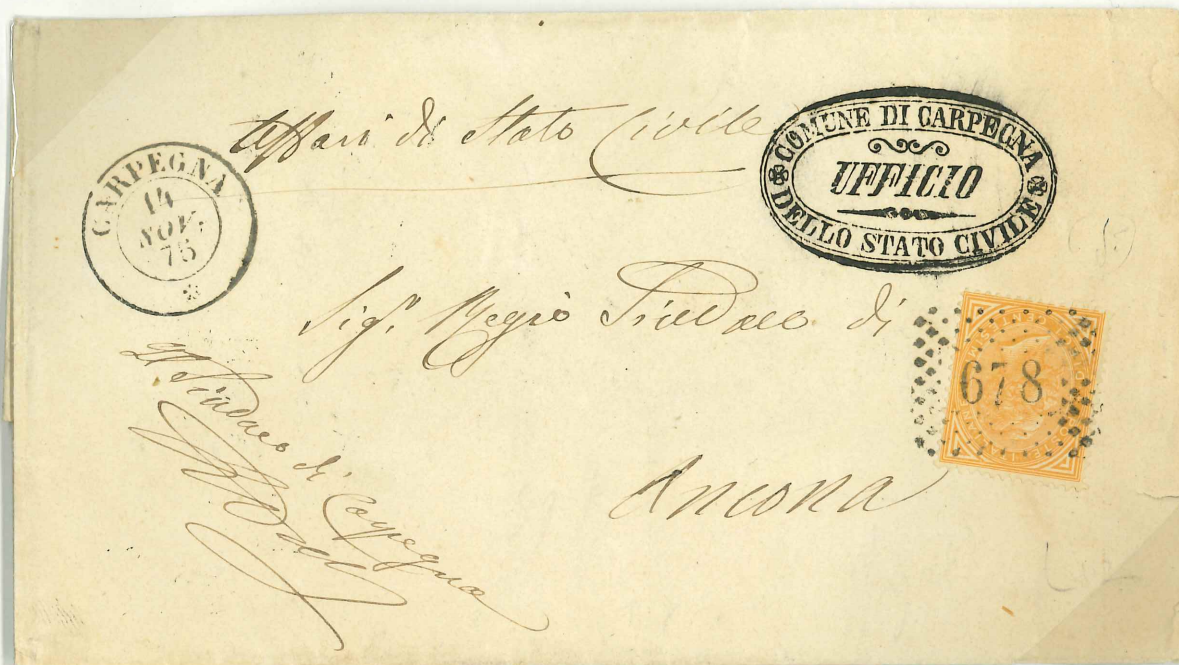 Affari di Stato Civile
COMUNE DI CARPEGNA
UFFICIO
DELLO STATO CIVILE
CARPEGNA
14
NOV.
75
Sigr. Regio Sindaco di
Ancona
678
Il Sindaco di Carpegna